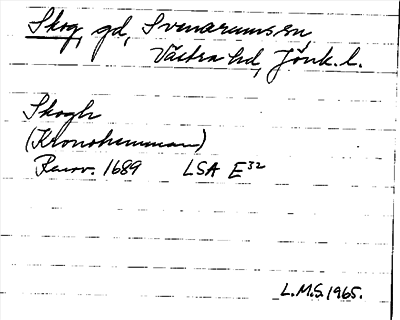 Skog, gd, Svenarums sn,
Västra hd, Jönk. l.
Skogh
(Kronohemman)
Ransv. 1689 LSA E32
L.M.S. 1965.